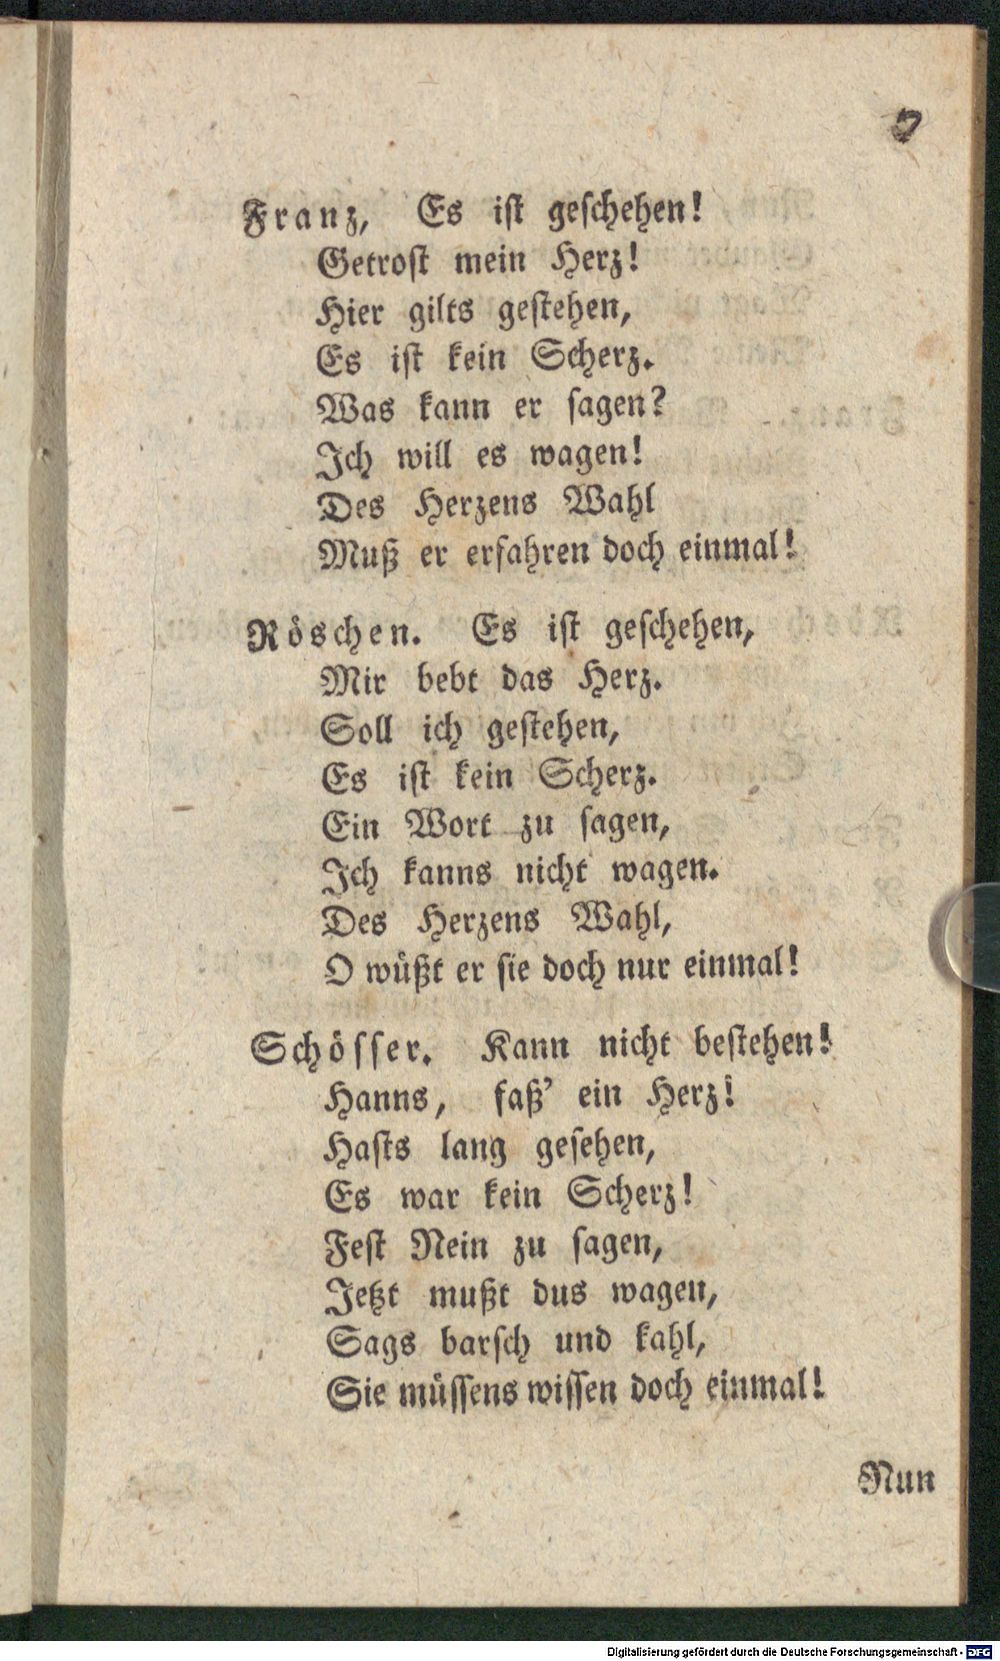 Franz, Es iſt geſchehen!
Getroſt mein Herz!
Hier gilts geſtehen,
Es iſt kein Scherz.
Was kann er ſagen?
Ich will es wagen!
Des Herzens Wahl
Muß er erfahren doch einmal!
Röschen. Es iſt geſchehen,
Mir bebt das Herz.
Soll ich geſtehen,
Es iſt kein Scherz.
Ein Wort zu ſagen,
Ich kanns nicht wagen.
Des Herzens Wahl,
O wüßt er ſie doch nur einmal!
Schöſſer. Kann nicht beſtehen!
Hanns, faß' ein Herz!
Haſts lang geſehen,
Es war kein Scherz!
Feſt Nein zu ſagen,
Jetzt mußt dus wagen,
Sags barſch und kahl,
Sie müſſens wiſſen doch einmal!
Nun
Digitalisierung gefördert durch die Deutsche Forschungsgemeinschaft - DFG